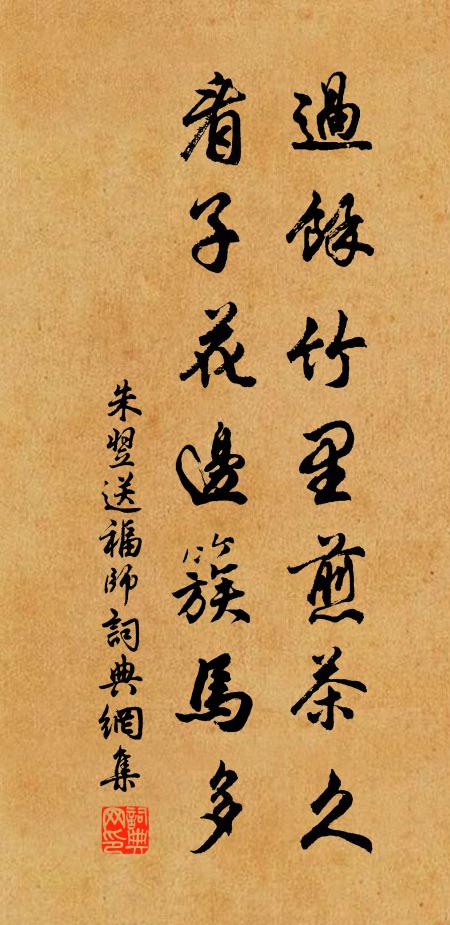 過餘竹里煎茶久
看子花邊簇馬多
朱翌送福師詞典網集
詞典網印